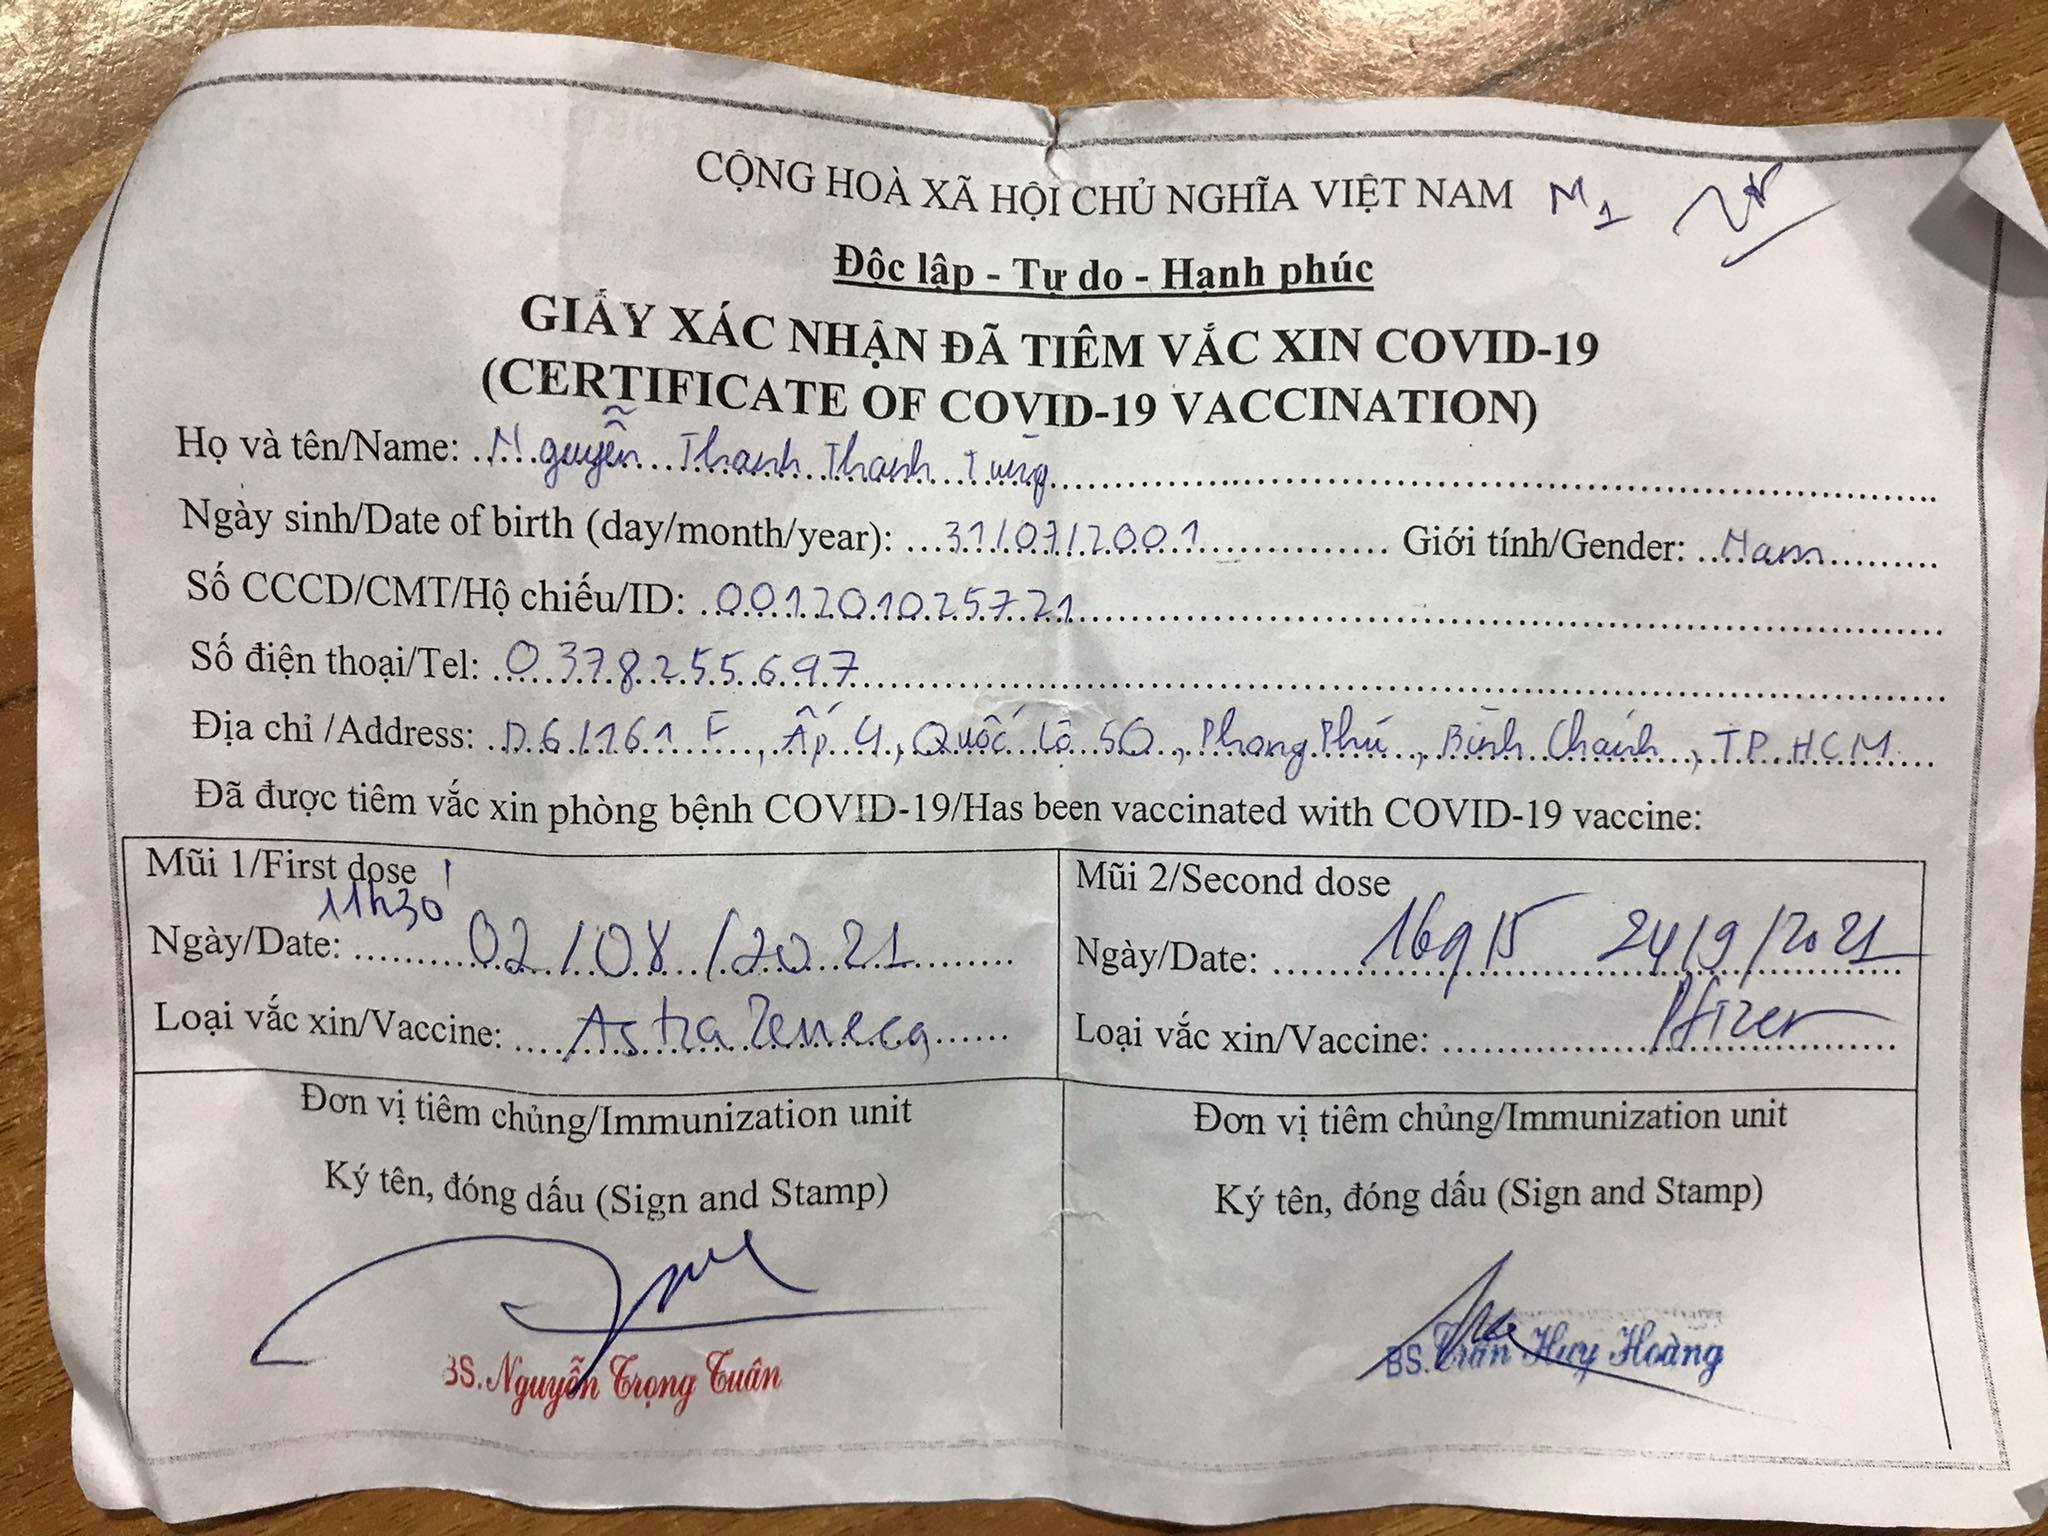 CỘNG HOÀ XÃ HỘI CHỦ NGHĨA VIỆT NAM M1
Độc lập - Tự do - Hạnh phúc
GIẤY XÁC NHẬN ĐÃ TIÊM VẮC XIN COVID-19
(CERTIFICATE OF COVID-19 VACCINATION)
Họ và tên/Name: Nguyễn Thanh Thanh Tùng
Ngày sinh/Date of birth (day/month/year): 31/07/2001 Giới tính/Gender: Nam
Số CCCD/CMT/Hộ chiếu/ID: 001201025721
Số điện thoại/Tel: 0378255697
Địa chỉ /Address: D6/161 F, Ấp 4, Quốc Lộ 50, Phong Phú, Bình Chánh, TP HCM
Đã được tiêm vắc xin phòng bệnh COVID-19/Has been vaccinated with COVID-19 vaccine:
Mũi 1/First dose
11h30'
Ngày/Date: 02/08/2021
Loại vắc xin/Vaccine: AstraZeneca
Đơn vị tiêm chủng/Immunization unit
Ký tên, đóng dấu (Sign and Stamp)
BS. Nguyễn Trọng Tuân
Mũi 2/Second dose
Ngày/Date: 16g15 24/9/2021
Loại vắc xin/Vaccine: Pfizer
Đơn vị tiêm chủng/Immunization unit
Ký tên, đóng dấu (Sign and Stamp)
BS. Trần Huy Hoàng